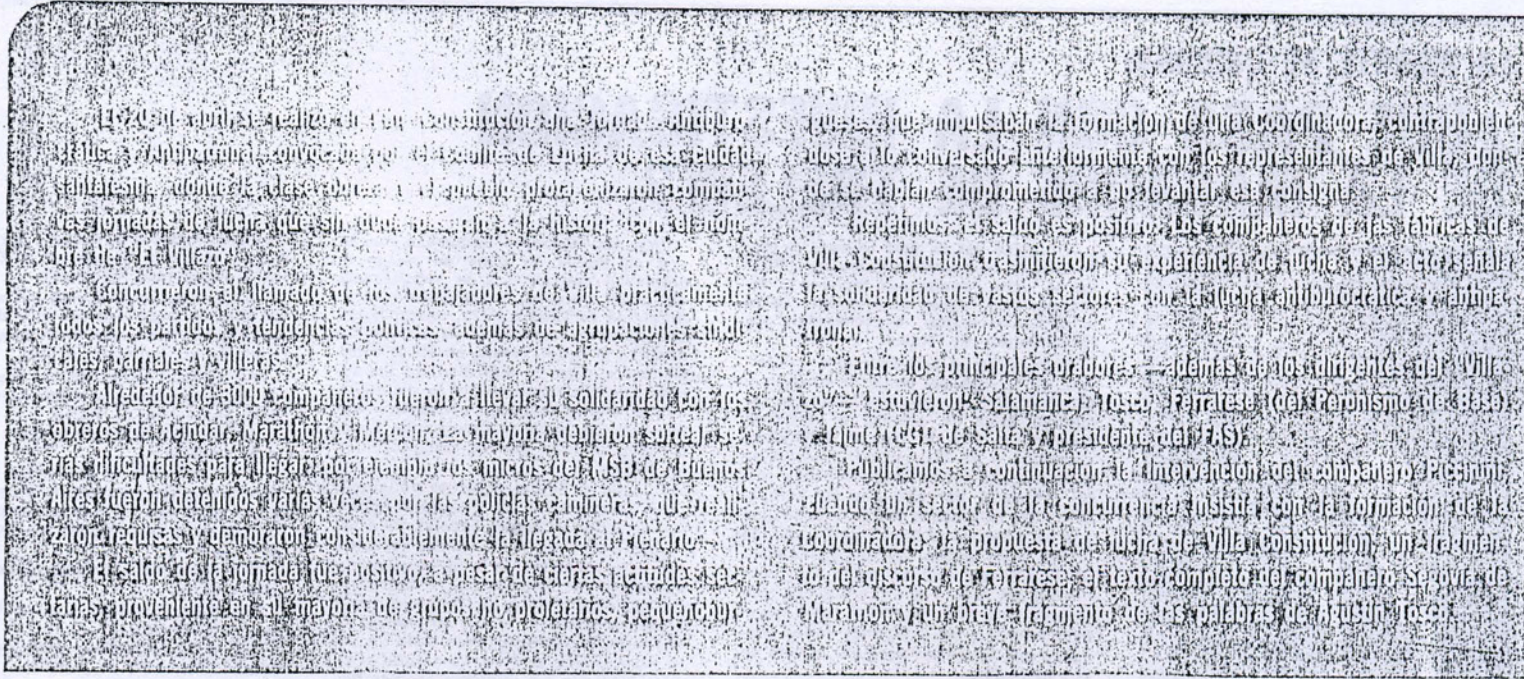 El 20 de abril se realizó en Villa Constitución una Jornada Antiburo-
crática y Antipatronal convocada por el Comité de Lucha de esa ciudad
santafesina, donde la clase obrera y el pueblo protagonizaron combati-
vas jornadas de lucha que sin duda pasarán a la historia con el nom-
bre de "El Villazo".
Concurrieron al llamado de los trabajadores de Villa prácticamente
todos los partidos y tendencias políticas además de agrupaciones sindi-
cales, barriales y villeras.
Alrededor de 5000 compañeros fueron a llevar su solidaridad con los
obreros de Acindar, Marathon y Metcon. La mayoría debieron sortear se-
rias dificultades para llegar; por ejemplo los micros del MSB de Buenos
Aires fueron detenidos varias veces por las policías camineras, que reali-
zaron requisas y demoraron considerablemente la llegada al Plenario.
El saldo de la jornada fue positivo, a pesar de ciertas actitudes sec-
tarias, proveniente en su mayoría de grupos no proletarios, pequeñobur-
gueses, que impulsaban la formación de una Coordinadora, contraponién-
dose a lo conversado anteriormente con los representantes de Villa, don-
de se habían comprometido a no levantar esa consigna.
Repetimos: el saldo es positivo. Los compañeros de las fábricas de
Villa Constitución trasmitieron su experiencia de lucha y el acto señala
la solidaridad de vastos sectores con la lucha antiburocrática y antipa-
tronal.
Entre los principales oradores —además de los dirigentes del "Villa-
zo"— estuvieron: Salamanca, Tosco, Ferrarese (del Peronismo de Base)
y Jaime (CGT de Salta y presidente del FAS).
Publicamos a continuación la intervención del compañero Piccinini
cuando un sector de la concurrencia insistía con la formación de la
Coordinadora, la propuesta de lucha de Villa Constitución, un fragmen-
to del discurso de Ferrarese, el texto completo del compañero Segovia de
Marathon y un breve fragmento de las palabras de Agustín Tosco.